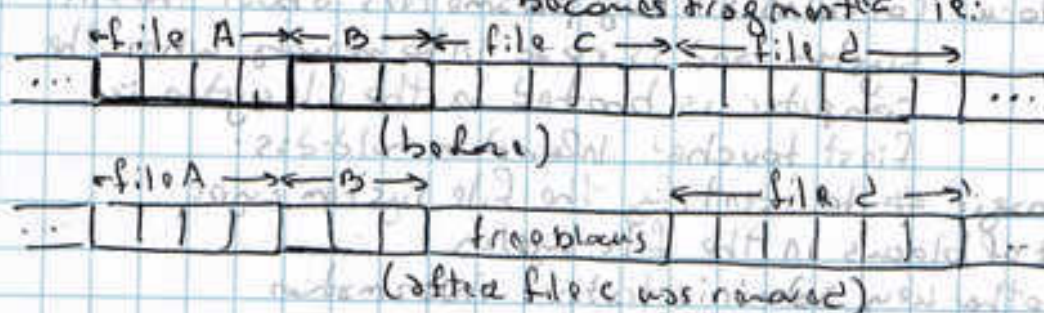 becomes fragmented ie:
file A B file C file d
... ...
(before)
file A B file d
... free blocks ...
(after file c was removed)